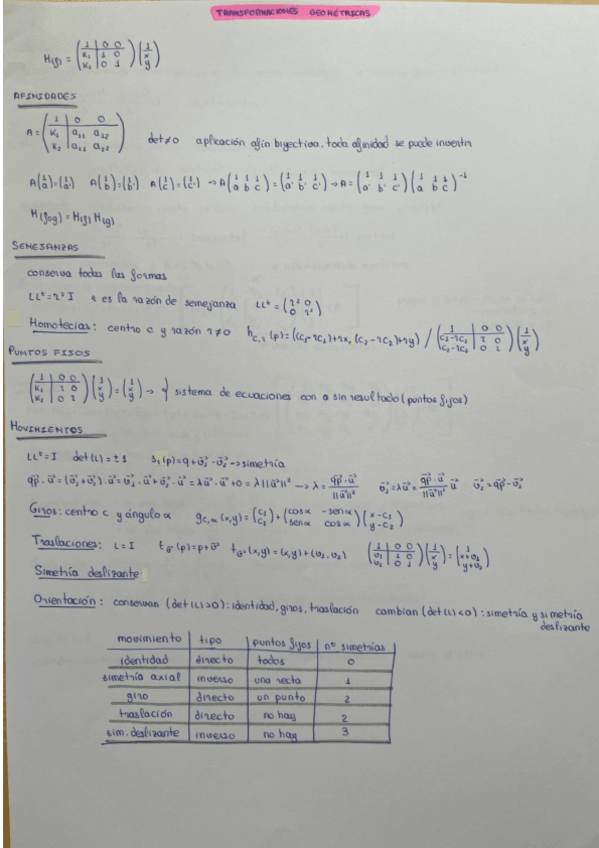 TRANSFORMACIONES GEOMÉTRICAS
M(g) = (1 | 0 0 ; k₁ | 1 0 ; k₂ | 0 1) (1 ; x ; y)
AFINIDADES
A = (1 | 0 0 ; k₁ | a₁₁ a₁₂ ; k₂ | a₂₁ a₂₂) det≠0 aplicación afín biyectiva. toda afinidad se puede invertir
A(1 ; a) = (1 ; a') A(1 ; b) = (1 ; b') A(1 ; c) = (1 ; c') → A(1 1 1 ; a b c) = (1 1 1 ; a' b' c') → A = (1 1 1 ; a' b' c') (1 1 1 ; a b c)⁻¹
M(fog) = M(f) M(g)
SEMEJANZAS
conserva todas las formas
LLᵗ = r² I r es la razón de semejanza LLᵗ = (r² 0 ; 0 r²)
Homotecias: centro c y razón r≠0 h c,r (p) = ((c₁-rc₁)+rx, (c₂-rc₂)+ry) / (1 | 0 0 ; c₁-rc₁ | r 0 ; c₂-rc₂ | 0 r) (1 ; x ; y)
PUNTOS FIJOS
(1 ; x ; y) = (1 ; x ; y) → sistema de ecuaciones con o sin resultado (puntos fijos)
MOVIMIENTOS
LLᵗ = I det(L) = ±1 s₁(p) = q + v⃗₁ - v⃗₂ → simetría
qp⃗ · u⃗ = (v⃗₁ + v⃗₂) · u⃗ = v⃗₁ · u⃗ + v⃗₂ · u⃗ = λu⃗ · u⃗ + 0 = λ||u⃗||² → λ = qp⃗ · u⃗ / ||u⃗||² v⃗₁ = λu⃗ = qp⃗ · u⃗ / ||u⃗||² u⃗ v⃗₂ = qp⃗ - v⃗₁
Giros: centro c y ángulo α g c,α (x,y) = (c₁ ; c₂) + (cosα -senα ; senα cosα) (x-c₁ ; y-c₂)
Traslaciones: L = I t v⃗ (p) = p + v⃗ t v⃗ (x,y) = (x,y) + (v₁, v₂) (1 | 0 0 ; v₁ | 1 0 ; v₂ | 0 1) (1 ; x ; y) = (1 ; x+v₁ ; y+v₂)
Simetría deslizante:
Orientación: conservan (det(L)>0): identidad, giros, traslación cambian (det(L)<0): simetría y simetría
deslizante
movimiento tipo puntos fijos nº simetrías
identidad directo todos 0
simetría axial inverso una recta 1
giro directo un punto 2
traslación directo no hay 2
sim. deslizante inverso no hay 3